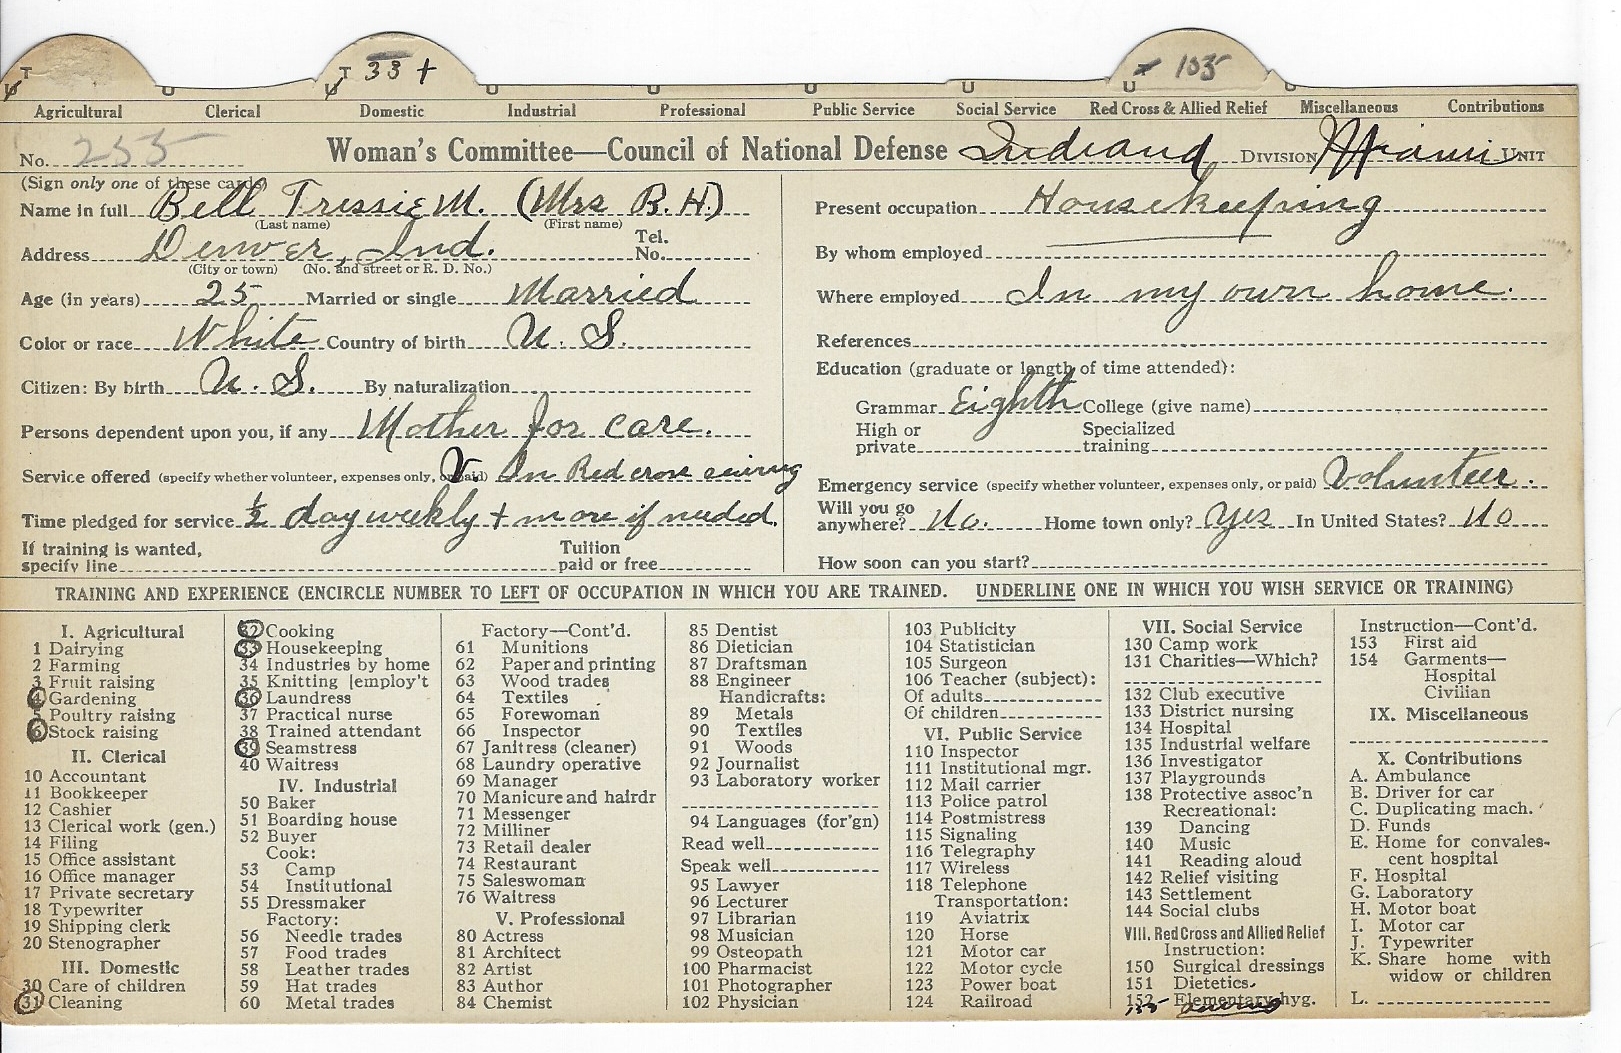 T 33 + 105
U T U T U U U U U U
Agricultural Clerical Domestic Industrial Professional Public Service Social Service Red Cross & Allied Relief Miscellaneous Contributions
No. 255 Woman's Committee—Council of National Defense Indiana DIVISION Miami UNIT
(Sign only one of these cards)
Name in full Bell Tressie M. (Mrs B. H.)
(Last name) (First name)
Address Denver, Ind. Tel. No.
(City or town) (No. and street or R. D. No.)
Age (in years) 25 Married or single Married
Color or race White Country of birth U. S.
Citizen: By birth U. S. By naturalization
Persons dependent upon you, if any Mother for care.
Service offered (specify whether volunteer, expenses only, or paid) V. In Red cross sewing
Time pledged for service ½ day weekly + more if needed.
If training is wanted, specify line Tuition paid or free
Present occupation Housekeeping
By whom employed
Where employed In my own home.
References
Education (graduate or length of time attended):
Grammar Eighth College (give name)
High or private Specialized training
Emergency service (specify whether volunteer, expenses only, or paid) Volunteer.
Will you go anywhere? No. Home town only? Yes In United States? No
How soon can you start?
TRAINING AND EXPERIENCE (ENCIRCLE NUMBER TO LEFT OF OCCUPATION IN WHICH YOU ARE TRAINED. UNDERLINE ONE IN WHICH YOU WISH SERVICE OR TRAINING)
I. Agricultural
1 Dairying
2 Farming
3 Fruit raising
4 Gardening
5 Poultry raising
6 Stock raising
II. Clerical
10 Accountant
11 Bookkeeper
12 Cashier
13 Clerical work (gen.)
14 Filing
15 Office assistant
16 Office manager
17 Private secretary
18 Typewriter
19 Shipping clerk
20 Stenographer
III. Domestic
30 Care of children
31 Cleaning
32 Cooking
33 Housekeeping
34 Industries by home
35 Knitting [employ't
36 Laundress
37 Practical nurse
38 Trained attendant
39 Seamstress
40 Waitress
IV. Industrial
50 Baker
51 Boarding house
52 Buyer
Cook:
53 Camp
54 Institutional
55 Dressmaker
Factory:
56 Needle trades
57 Food trades
58 Leather trades
59 Hat trades
60 Metal trades
Factory—Cont'd.
61 Munitions
62 Paper and printing
63 Wood trades
64 Textiles
65 Forewoman
66 Inspector
67 Janitress (cleaner)
68 Laundry operative
69 Manager
70 Manicure and hairdr
71 Messenger
72 Milliner
73 Retail dealer
74 Restaurant
75 Saleswoman
76 Waitress
V. Professional
80 Actress
81 Architect
82 Artist
83 Author
84 Chemist
85 Dentist
86 Dietician
87 Draftsman
88 Engineer
Handicrafts:
89 Metals
90 Textiles
91 Woods
92 Journalist
93 Laboratory worker
94 Languages (for'gn)
Read well
Speak well
95 Lawyer
96 Lecturer
97 Librarian
98 Musician
99 Osteopath
100 Pharmacist
101 Photographer
102 Physician
103 Publicity
104 Statistician
105 Surgeon
106 Teacher (subject):
Of adults
Of children
VI. Public Service
110 Inspector
111 Institutional mgr.
112 Mail carrier
113 Police patrol
114 Postmistress
115 Signaling
116 Telegraphy
117 Wireless
118 Telephone
Transportation:
119 Aviatrix
120 Horse
121 Motor car
122 Motor cycle
123 Power boat
124 Railroad
VII. Social Service
130 Camp work
131 Charities—Which?
132 Club executive
133 District nursing
134 Hospital
135 Industrial welfare
136 Investigator
137 Playgrounds
138 Protective assoc'n
Recreational:
139 Dancing
140 Music
141 Reading aloud
142 Relief visiting
143 Settlement
144 Social clubs
VIII. Red Cross and Allied Relief
Instruction:
150 Surgical dressings
151 Dietetics
152 Elementary hyg.
155 sewing
Instruction—Cont'd.
153 First aid
154 Garments—
Hospital
Civilian
IX. Miscellaneous
X. Contributions
A. Ambulance
B. Driver for car
C. Duplicating mach.
D. Funds
E. Home for convales-
cent hospital
F. Hospital
G. Laboratory
H. Motor boat
I. Motor car
J. Typewriter
K. Share home with
widow or children
L.